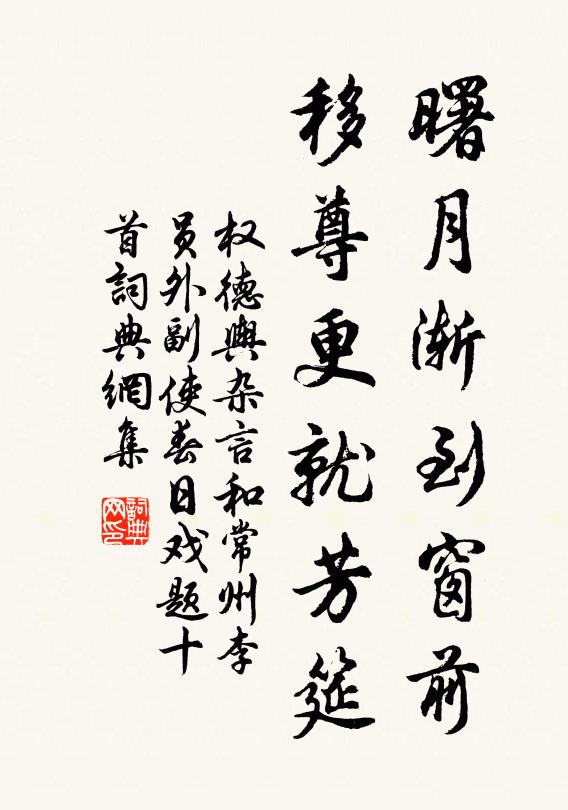 曙月渐到窗前
移尊更就芳筵
权德輿杂言和常州李
员外副使春日戏题十
首詞典網集
詞典
网印